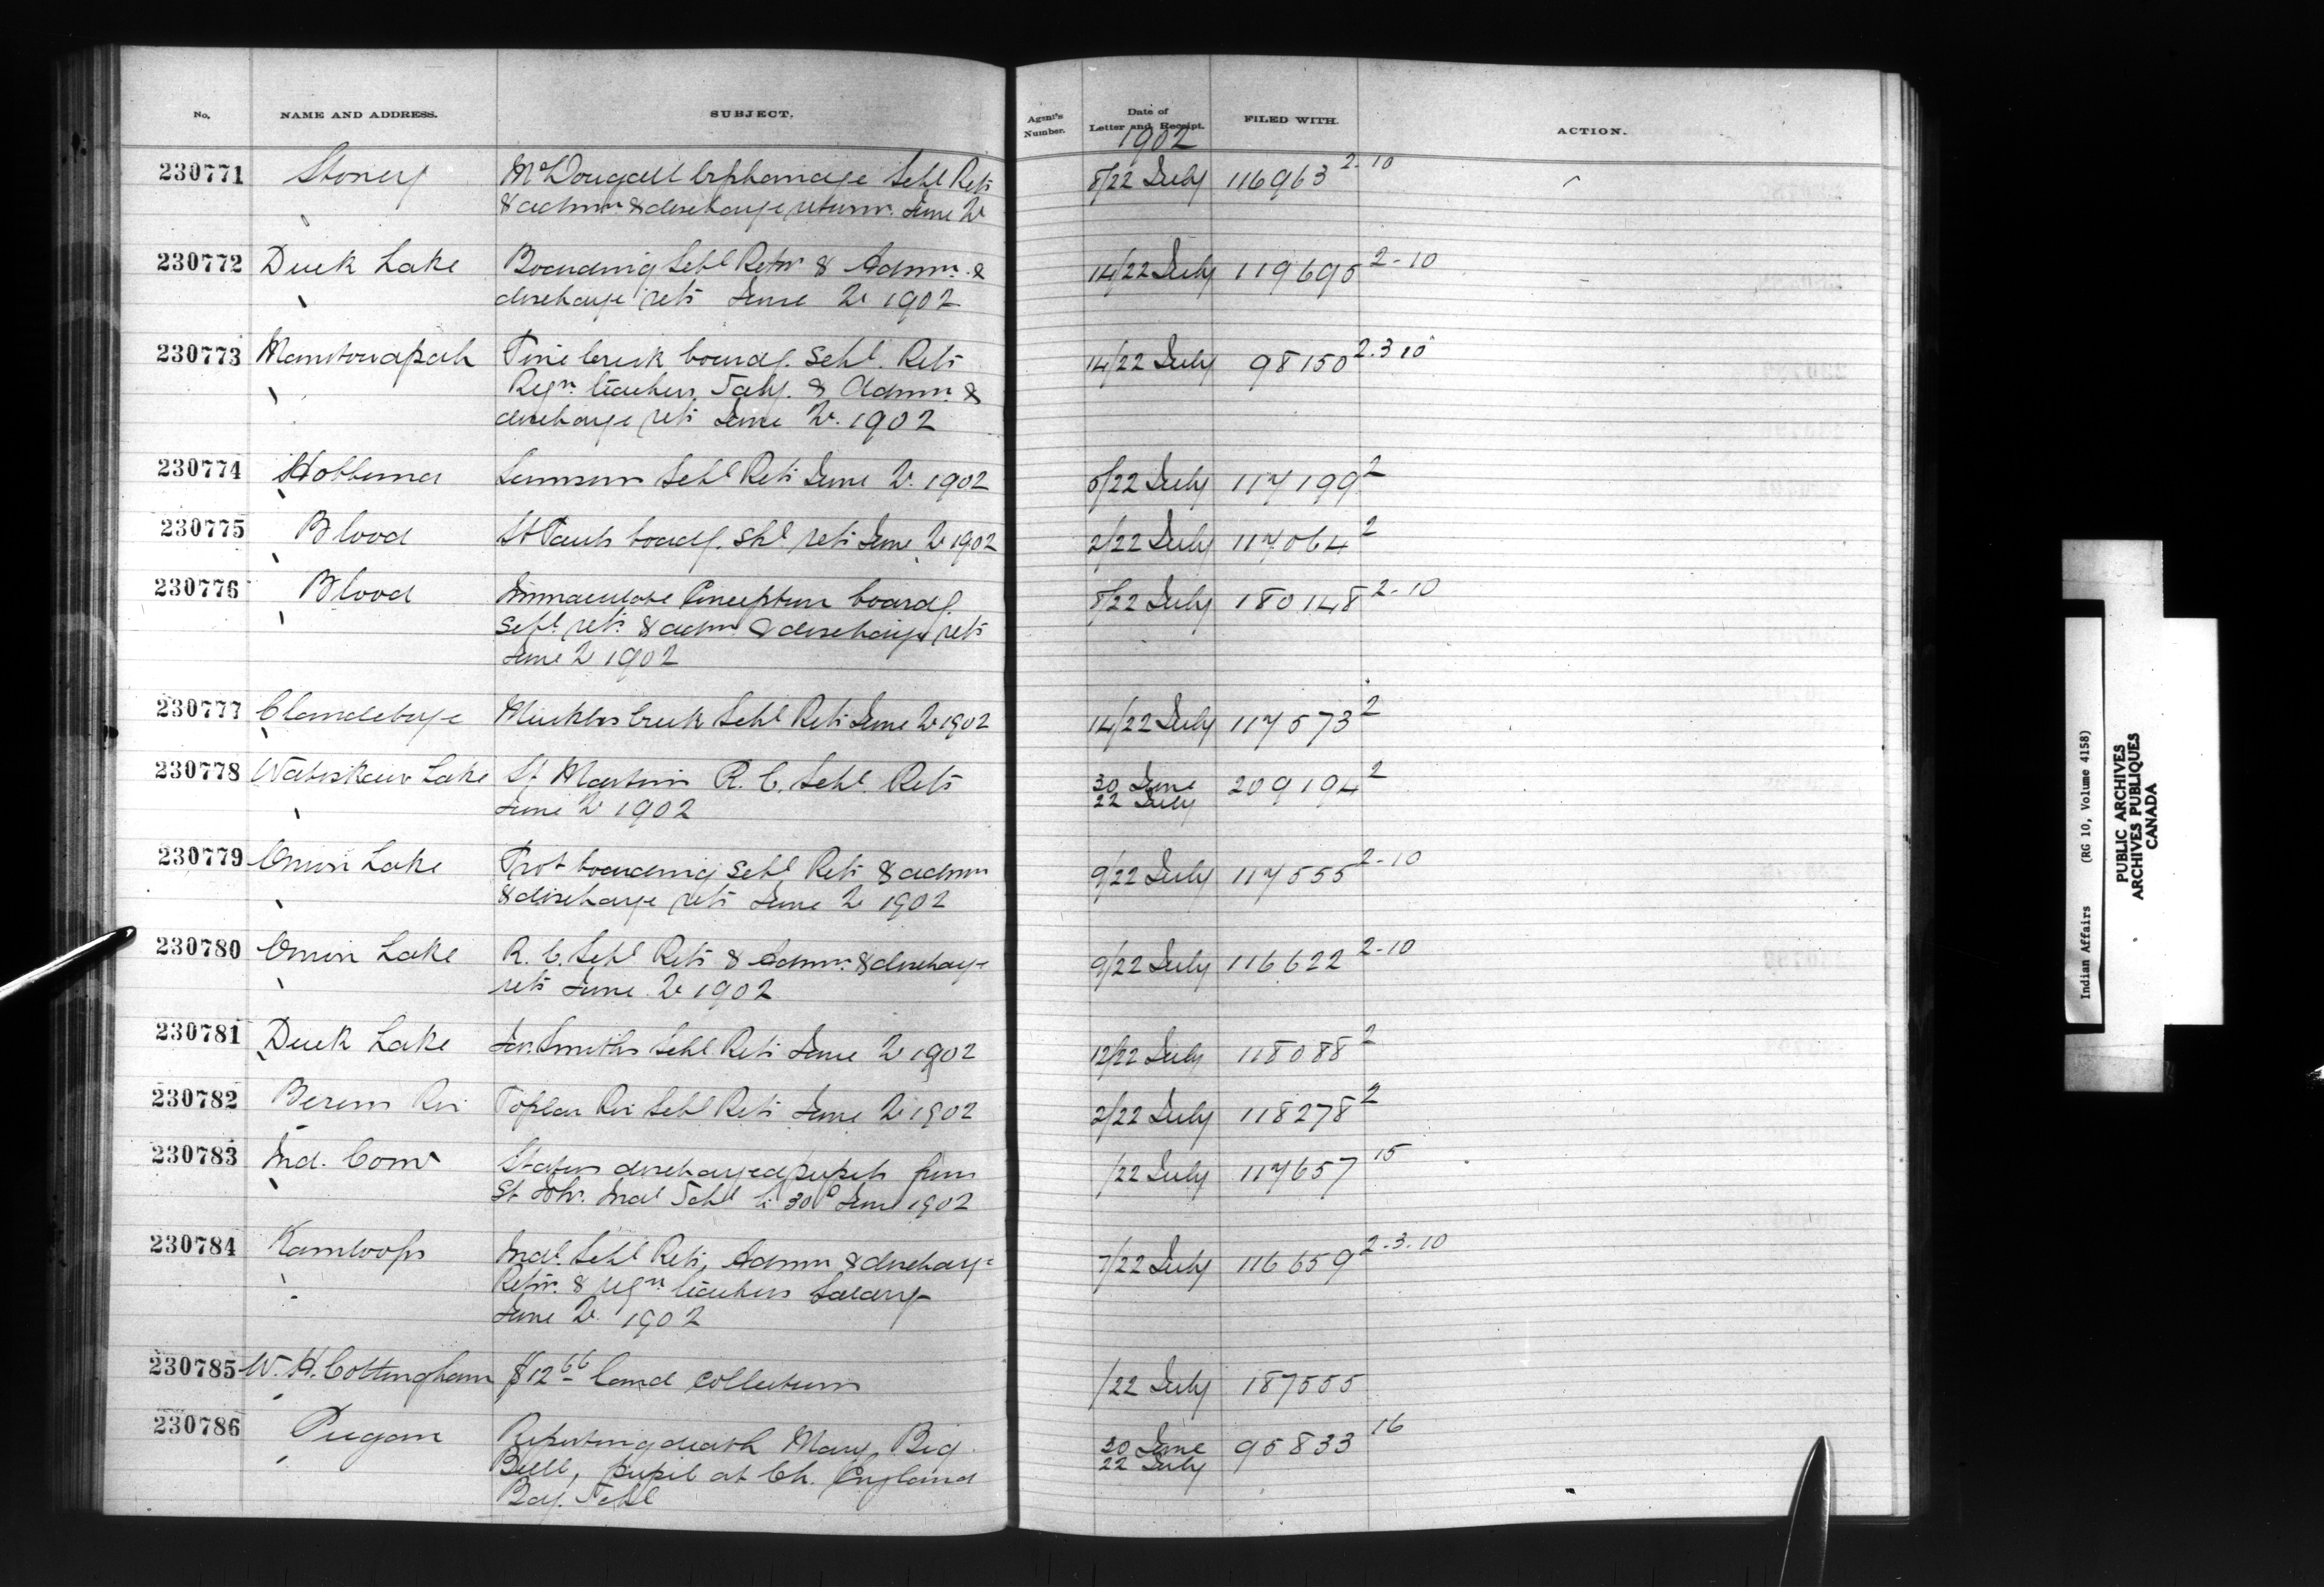 No. NAME AND ADDRESS. SUBJECT. Agent's Number. Date of Letter and Receipt. FILED WITH. ACTION.
1902
230771 Stoney McDougall Orphanage Schl Rets 8/22 July 116963 2-10
& admn & discharge returns. June
230772 Duck Lake Boarding Schl Retns & Admn. & 14/22 July 119695 2-10
discharge rets June 1902
230773 Manitowapah Pine Creek boardg. Schl. Rets 14/22 July 98150 2.3 10
Reqn teachers Saly. & Admn. &
discharge rets June 1902
230774 Hobbema Samson Schl Rets June 1902 8/22 July 117199 2
230775 Blood St Pauls boardg. Shl rets June 1902 2/22 July 117064 2
230776 Blood Immaculate Conception boardg. 8/22 July 180148 2-10
Schl. rets. & admn & discharge rets
June 1902
230777 Clandeboye Muckles Creek Schl Rets June 1902 14/22 July 117573 2
230778 Wabiskaw Lake St Martins R. C. Schl. Rets 30 June 209194 2
June 1902 22 July
230779 Onion Lake Prot boarding Schl Rets & admn 9/22 July 117555 2-10
& discharge rets June 1902
230780 Onion Lake R. C. Schl Rets & Admn. & discharge 9/22 July 116622 2-10
rets June 1902
230781 Duck Lake Jas. Smiths Schl. Rets June 1902 12/22 July 118088 2
230782 Berens Riv Poplar Riv Schl Rets June 1902 2/22 July 118278 2
230783 Ind. Comr States discharged pupils from /22 July 117657 15
St. Indl Schl 30 June 1902
230784 Kamloops Indl. Schl Rets, Admn & discharge 7/22 July 116659 2-3-10
Retns. & reqn teachers Salary
June 1902
230785 W. H. Cottingham $12 66 Land collections /22 July 187555
230786 Piegan Reporting death Mary Big 30 June 95833 16
Bull, pupil at Ch. England 22 July
Boy. Schl
Indian Affairs (RG 10, Volume 4158)
PUBLIC ARCHIVES
ARCHIVES PUBLIQUES
CANADA